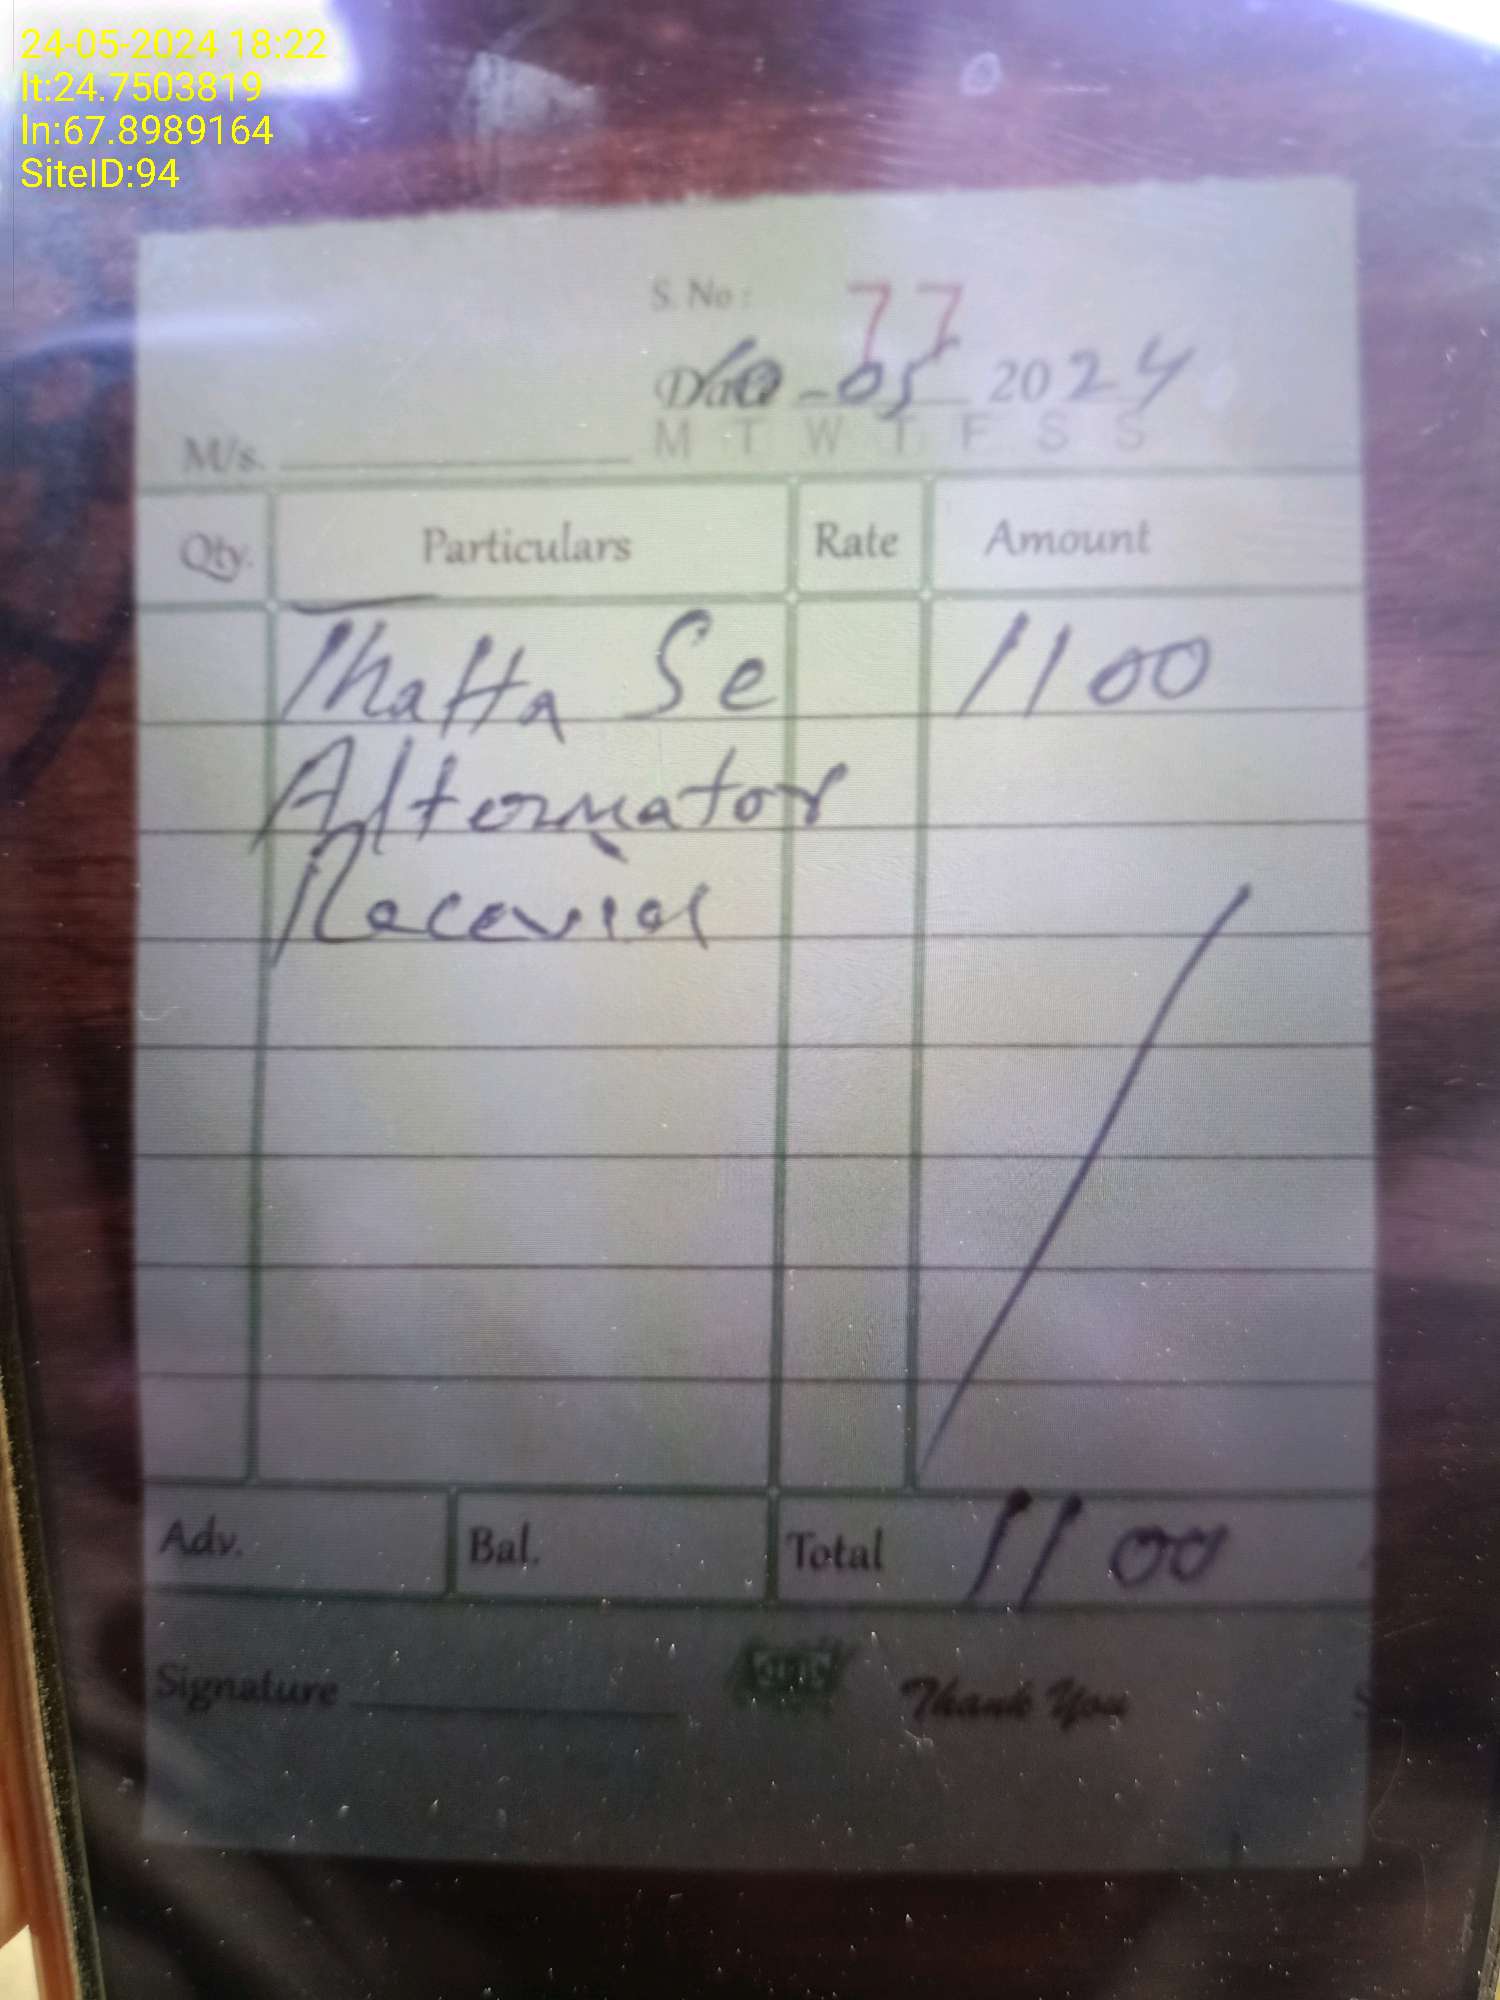 24-05-2024 18:22
lt:24.7503819
ln:67.8989164
SiteID:94
S. No : 77
Date 10-05 2024
M T W T F S S
M/s.
Qty. Particulars Rate Amount
Thatta Se 1100
Alternator
Recevied
Adv. Bal. Total 1100
Signature Thank You